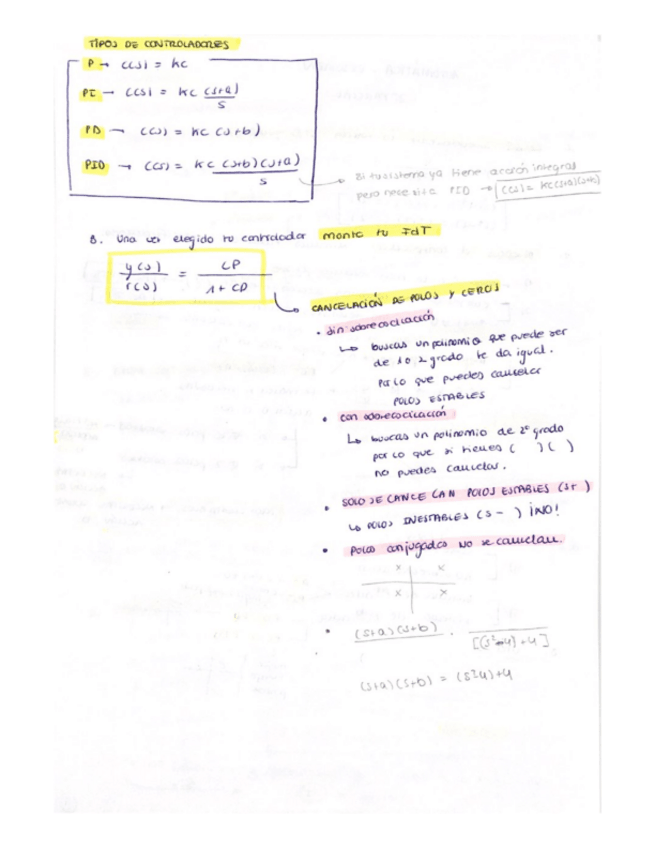 TIPOS DE CONTROLADORES
P → C(s) = kc
PI → C(s) = kc (s+a)
s
PD → C(s) = kc (s+b)
PID → C(s) = kc (s+b)(s+a)
s
Si tu sistema ya tiene acción integral
pero necesita PID → C(s) = kc(s+a)(s+b)
8. Una vez elegido tu controlador monta tu FdT
y(s) = CP
r(s) 1 + CP
CANCELACIÓN DE POLOS Y CEROS
• sin sobreoscilación
↳ buscas un polinomio que puede ser
de 1 o 2 grado te da igual.
por lo que puedes cancelar
POLOS ESTABLES
• con sobreoscilación
↳ buscas un polinomio de 2º grado
por lo que si tienes ( )( )
no puedes cancelar.
• SOLO SE CANCELAN POLOS ESTABLES (s+ )
↳ POLOS INESTABLES (s- ) ¡NO!
• Polos conjugados no se cancelan.
x x
x x
• (s+a)(s+b) ·
[(s²-4)+4]
(s+a)(s+b) = (s²4)+4